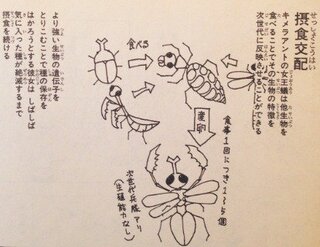 せっしょくこうはい
摂食交配
キメラアントの女王蟻は他生物を
食べることでその生物の特徴を
次世代に反映させることができる
食べる
産卵
食事1回につき1〜5個
次世代兵隊アリ
(生殖能力なし)
より強い生物の遺伝子を
とりこむことで種の保存を
はかろうとする彼女は しばしば
気に入った種を絶滅するまで
摂食を続ける